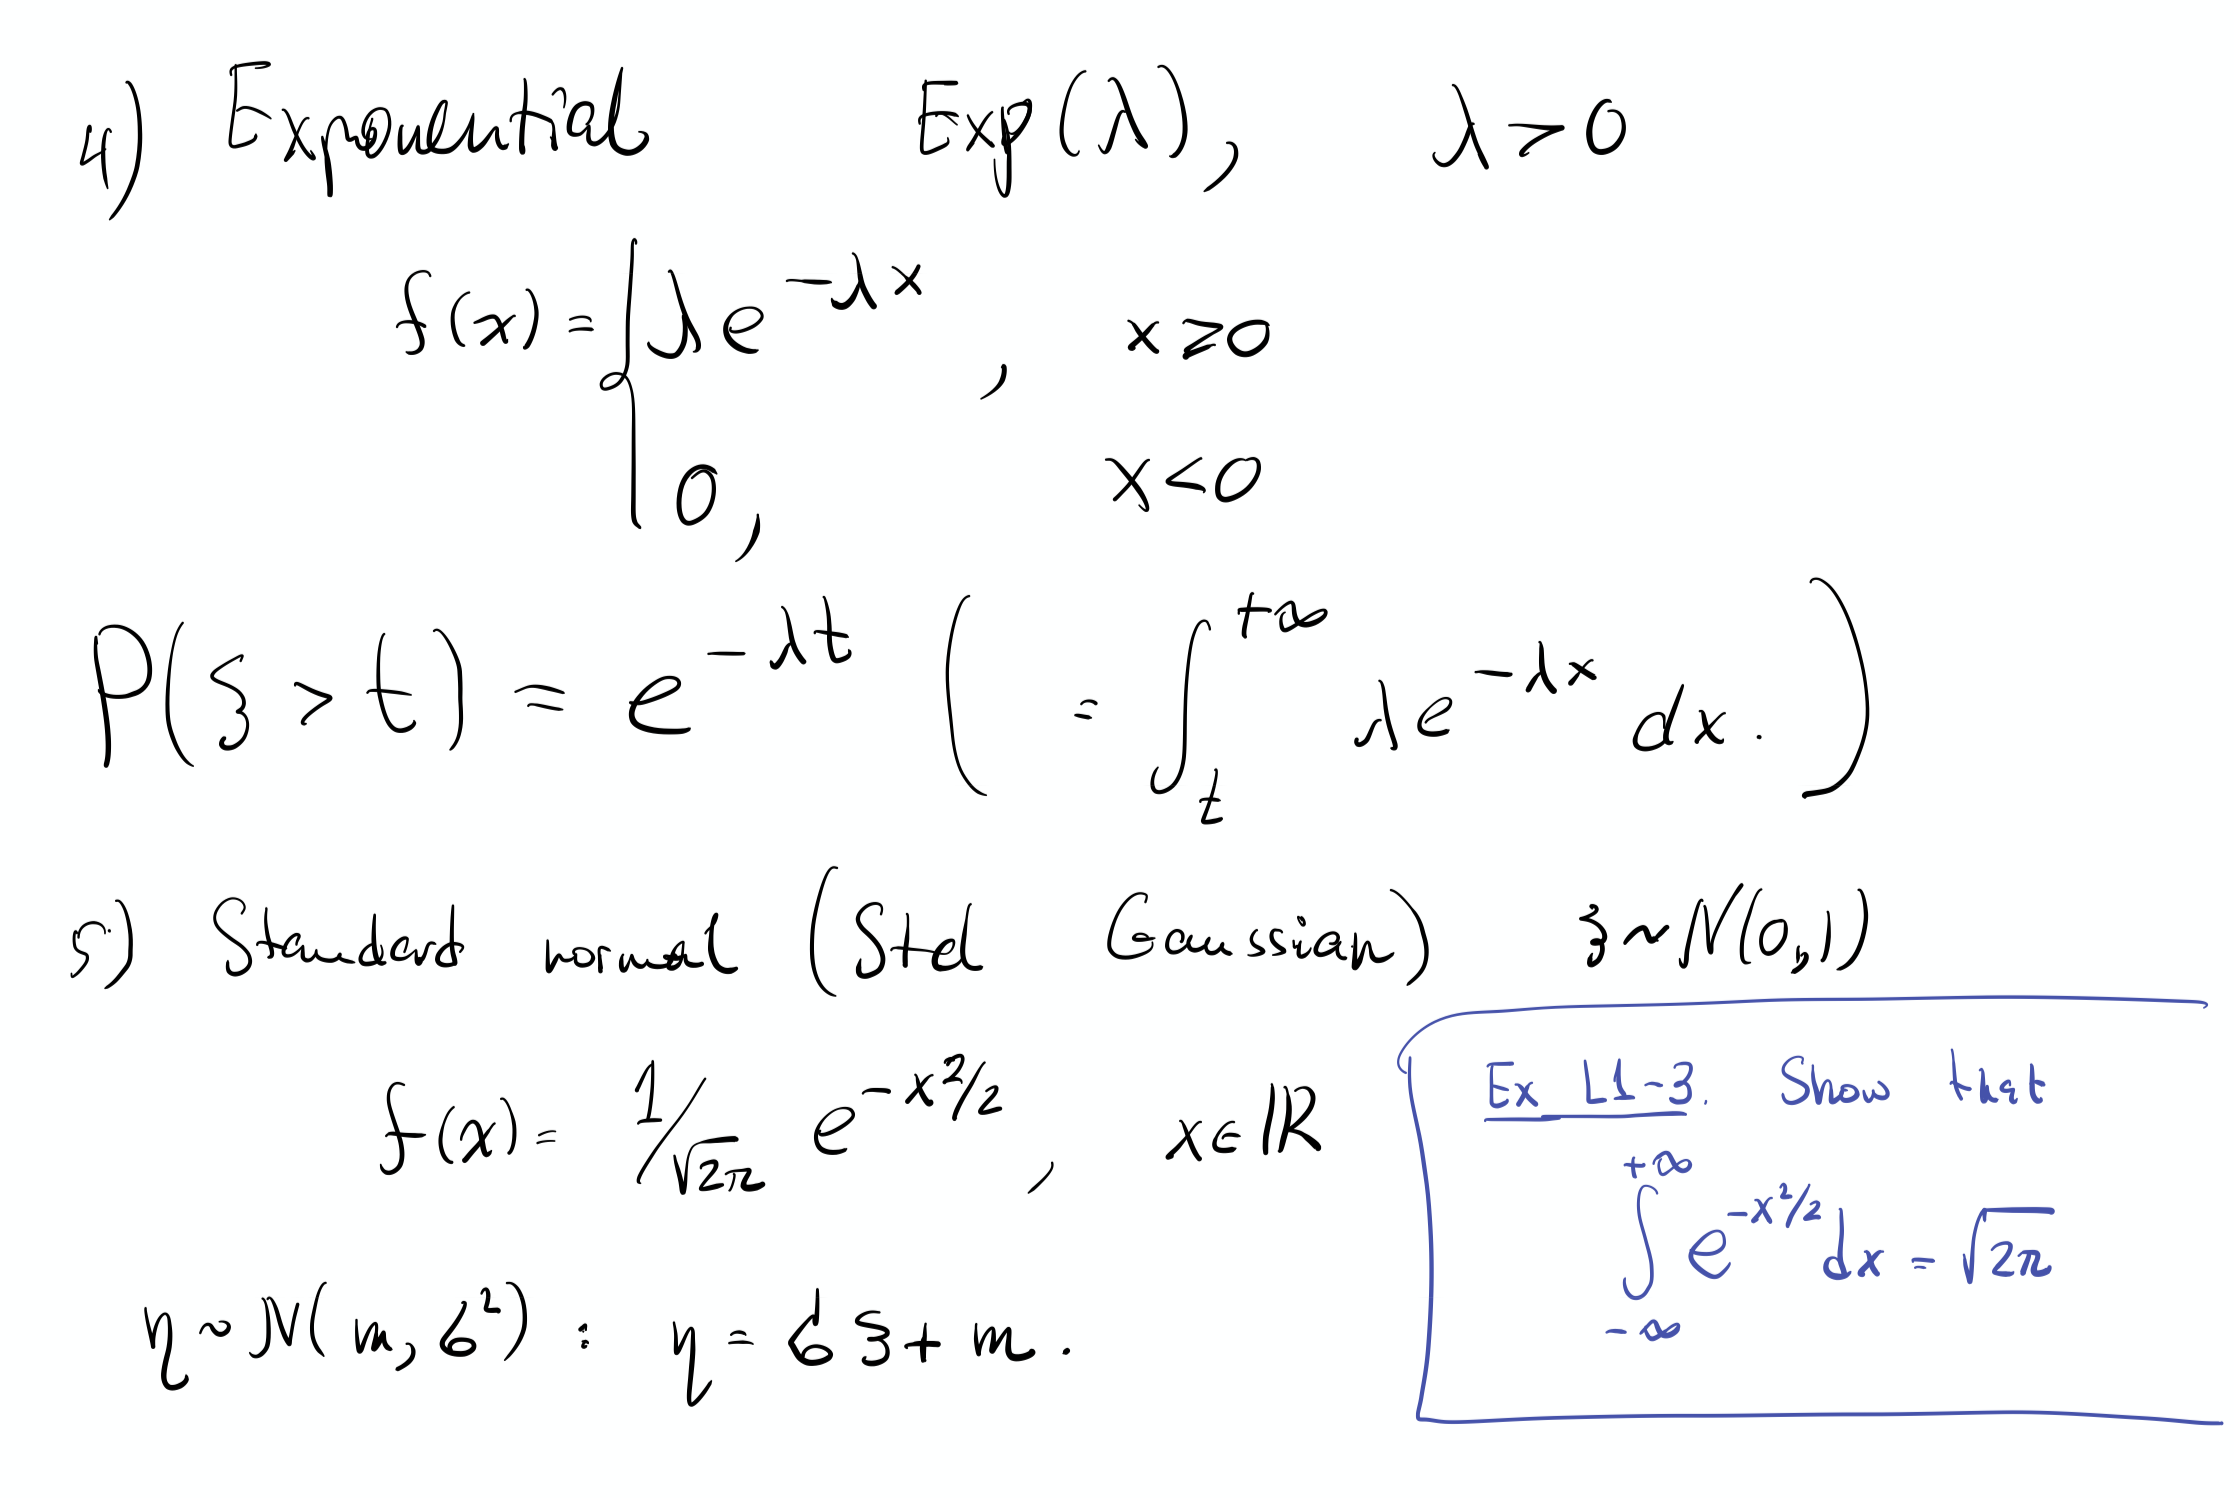 4) Exponential Exp(λ), λ > 0
f(x) = { λe^{-λx}, x ≥ 0
0, x < 0
P(ξ > t) = e^{-λt} ( = ∫_t^{+∞} λe^{-λx} dx. )
5) Standard normal (Std Gaussian) ξ ~ N(0,1)
f(x) = 1/√2π e^{-x²/2}, x ∈ ℝ
η ~ N(m, σ²) : η = σξ + m.
Ex L1-3. Show that
∫_{-∞}^{+∞} e^{-x²/2} dx = √2π